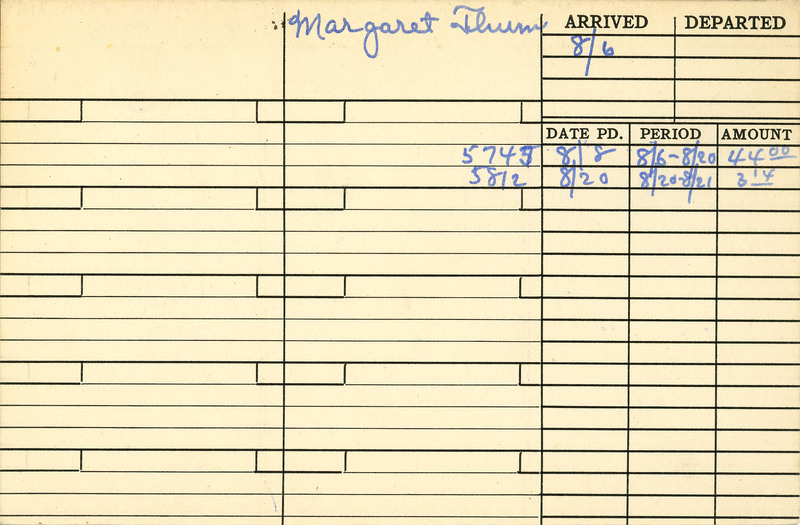 Margaret Thum
ARRIVED DEPARTED
8/6
DATE PD. PERIOD AMOUNT
5745 8/8 8/6-8/20 44 00
5812 8/20 8/20-8/21 3 14